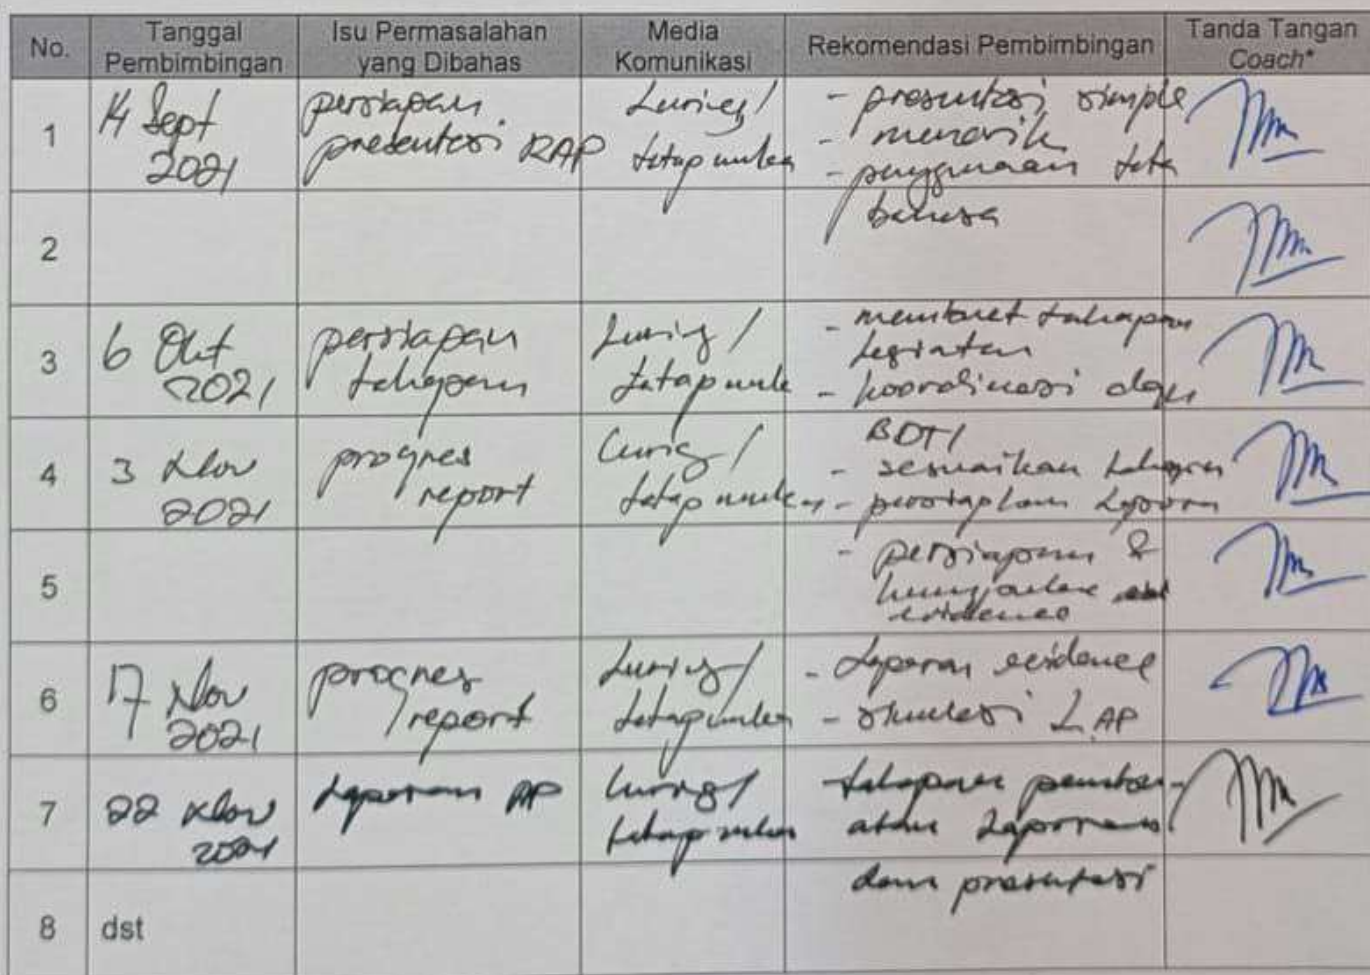 No.
Tanggal
Pembimbingan
Isu Permasalahan
yang Dibahas
Media
Komunikasi
Rekomendasi Pembimbingan
Tanda Tangan
Coach*
1
14 Sept
2021
persiapan
presentasi RAP
Luring/
tatap muka
- presentasi simple
- menarik
- penggunaan tata
bahasa
2
3
6 Okt
2021
persiapan
tahapan
Luring/
tatap muka
- membuat tahapan
kegiatan
- koordinasi dgn
BDTI
4
3 Nov
2021
progres
report
Luring/
tatap muka
- sesuaikan tahapan
- persiapkan laporan
5
- persiapan &
evidence
6
17 Nov
2021
progres
report
Luring/
tatap muka
- Laporan evidence
- simulasi LAP
7
22 Nov
2021
Laporan AP
Luring/
tatap muka
tahapan pembu-
atan Laporan
dan presentasi
8
dst